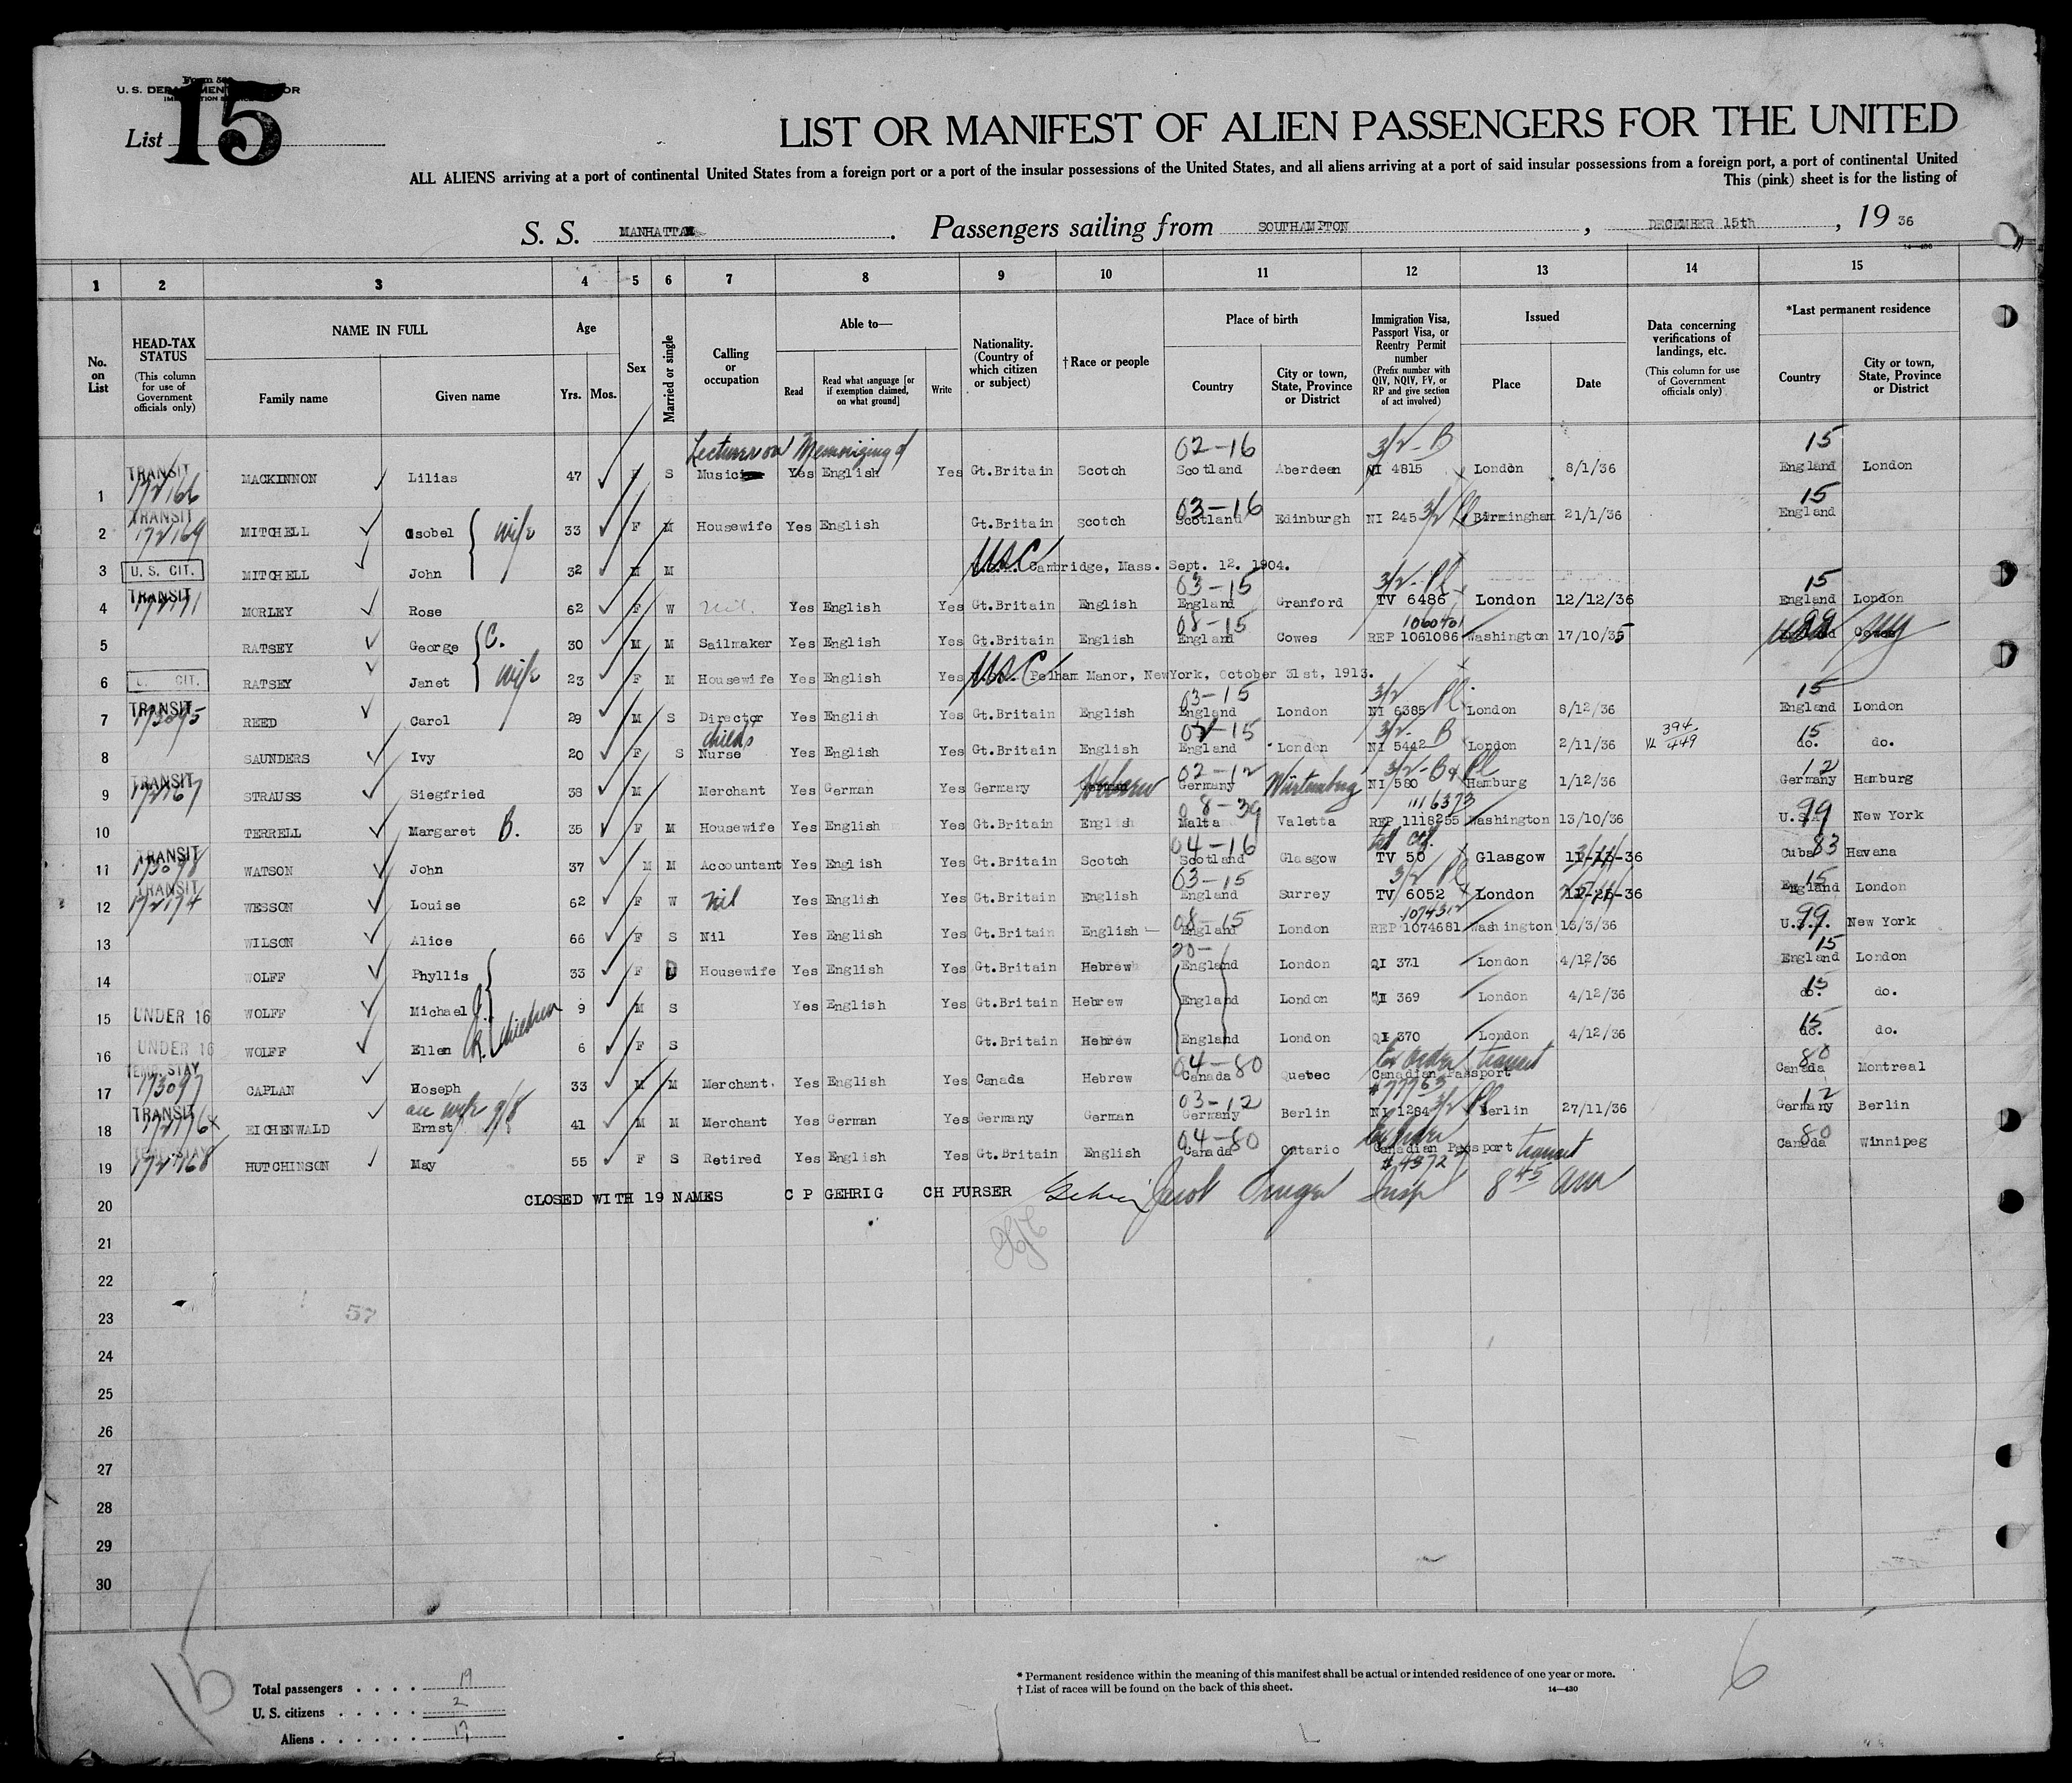 Form 500
U. S. DEPARTMENT OF LABOR
List 15
LIST OR MANIFEST OF ALIEN PASSENGERS FOR THE UNITED
ALL ALIENS arriving at a port of continental United States from a foreign port or a port of the insular possessions of the United States, and all aliens arriving at a port of said insular possessions from a foreign port, a port of continental United
This (pink) sheet is for the listing of
S. S. MANHATTAN. Passengers sailing from SOUTHAMPTON, DECEMBER 15th, 19 36
14—430
1 2 3 4 5 6 7 8 9 10 11 12 13 14 15
No. on List
HEAD-TAX STATUS (This column for use of Government officials only)
NAME IN FULL Family name Given name
Age Yrs. Mos.
Sex
Married or single
Calling or occupation
Able to— Read Read what language [or if exemption claimed, on what ground] Write
Nationality. (Country of which citizen or subject)
†Race or people
Place of birth Country City or town, State, Province or District
Immigration Visa, Passport Visa, or Reentry Permit number (Prefix number with QIV, NQIV, PV, or RP and give section of act involved)
Issued Place Date
Data concerning verifications of landings, etc. (This column for use of Government officials only)
*Last permanent residence Country City or town, State, Province or District
Lecturer on Memorizing of 02-16 3/2-B 15
1 TRANSIT 172166 MACKINNON Lilias 47 F S Music Yes English Yes Gt.Britain Scotch Scotland Aberdeen NI 4815 London 8/1/36 England London
03-16 15
2 TRANSIT 172169 MITCHELL Isobel wife 33 F M Housewife Yes English Gt.Britain Scotch Scotland Edinburgh NI 245 3/2 Pl Birmingham 21/1/36 England
3 U. S. CIT. MITCHELL John 32 M M USC Cambridge, Mass. Sept. 12. 1904.
03-15 3/2-Pl 15
4 TRANSIT 172171 MORLEY Rose 62 F W Nil. Yes English Yes Gt.Britain English England Cranford TV 6486 London 12/12/36 England London
08-15 1060701
5 RATSEY George C. 30 M M Sailmaker Yes English Yes Gt.Britain English England Cowes REP 1061086 Washington 17/10/35 Cowes NY
6 CIT. RATSEY Janet wife 23 F M Housewife Yes English Yes USC Pelham Manor, NewYork, October 31st, 1913.
03-15 3/2 Pl 15
7 TRANSIT 173095 REED Carol 29 M S Director Yes English Yes Gt.Britain English England London NI 6385 London 8/12/36 England London
child's 02-15 3/2-B 394/449 15
8 SAUNDERS Ivy 20 F S Nurse Yes English Yes Gt.Britain English England London NI 5442 London 2/11/36 do. do.
02-12 3/2-B & Pl 12
9 TRANSIT 172167 STRAUSS Siegfried 38 M Merchant Yes German Yes Germany Hebrew Germany Würtemburg NI 580 Hamburg 1/12/36 Germany Hamburg
08-39 1116373 99
10 TERRELL Margaret B. 35 F M Housewife Yes English Yes Gt.Britain English Malta Valetta REP 1118255 Washington 13/10/36 U.S.A. New York
04-16 83
11 TRANSIT 173098 WATSON John 37 M M Accountant Yes English Yes Gt.Britain Scotch Scotland Glasgow TV 50 Glasgow 11-13-36 Cuba Havana
03-15 3/2 Pl 15
12 TRANSIT 172174 WESSON Louise 62 F W Nil Yes English Yes Gt.Britain English England Surrey TV 6052 London 11-26-36 England London
08-15 1074312 99
13 WILSON Alice 66 F S Nil Yes English Yes Gt.Britain English England London REP 1074681 Washington 13/3/36 U.S.A. New York
20- 15
14 WOLFF Phyllis 33 F D Housewife Yes English Yes Gt.Britain Hebrew England London QI 371 London 4/12/36 England London
15 UNDER 16 WOLFF Michael J. 9 M S Yes English Yes Gt.Britain Hebrew England London QI 369 London 4/12/36 do. 15 do.
16 UNDER 16 WOLFF Ellen R. children 6 F S Gt.Britain Hebrew England London QI 370 London 4/12/36 do. 15 do.
04-80 transit 80
17 TEMP. STAY 173097 CAPLAN Hoseph 33 M M Merchant. Yes English Yes Canada Hebrew Canada Quebec Canadian Passport #77763 Canada Montreal
03-12 12
18 TRANSIT 172176 EICHENWALD Ernst 41 M M Merchant Yes German Yes Germany German Germany Berlin NI 1264 3/2 Pl Berlin 27/11/36 Germany Berlin
04-80 80
19 TEMP. STAY 172168 HUTCHINSON May 55 F S Retired Yes English Yes Gt.Britain English Canada Ontario Canadian Passport #4372 transit Canada Winnipeg
20 CLOSED WITH 19 NAMES C P GEHRIG CH PURSER Gehrig Jacob Insp 8 45 am
21
22
23 57
24
25
26
27
28
29
30
Total passengers . . . . 19
U. S. citizens . . . . . 2
Aliens . . . . . . 17
* Permanent residence within the meaning of this manifest shall be actual or intended residence of one year or more.
† List of races will be found on the back of this sheet. 14—430
6